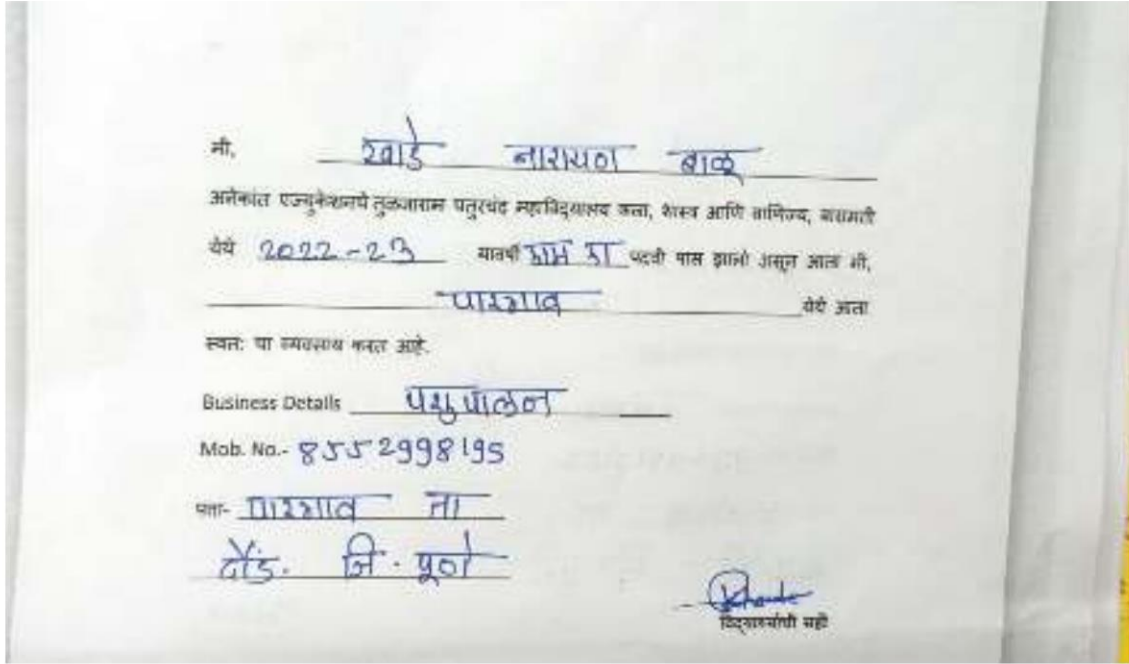 मी, खाडे नारायण बाळू
अनेकांत एज्युकेशनचे तुळजाराम चतुरचंद महाविद्यालय कला, शास्त्र आणि वाणिज्य, बारामती
येथे 2022-23 पदवी पास झालो असून आता मी,
पारगाव येथे आता
स्वतः चा व्यवसाय करत आहे.
Business Details पशुपालन
Mob. No.- 8552998195
पत्ता- पारगाव ता
दौंड. जि. पूणे
विद्यार्थ्याची सही